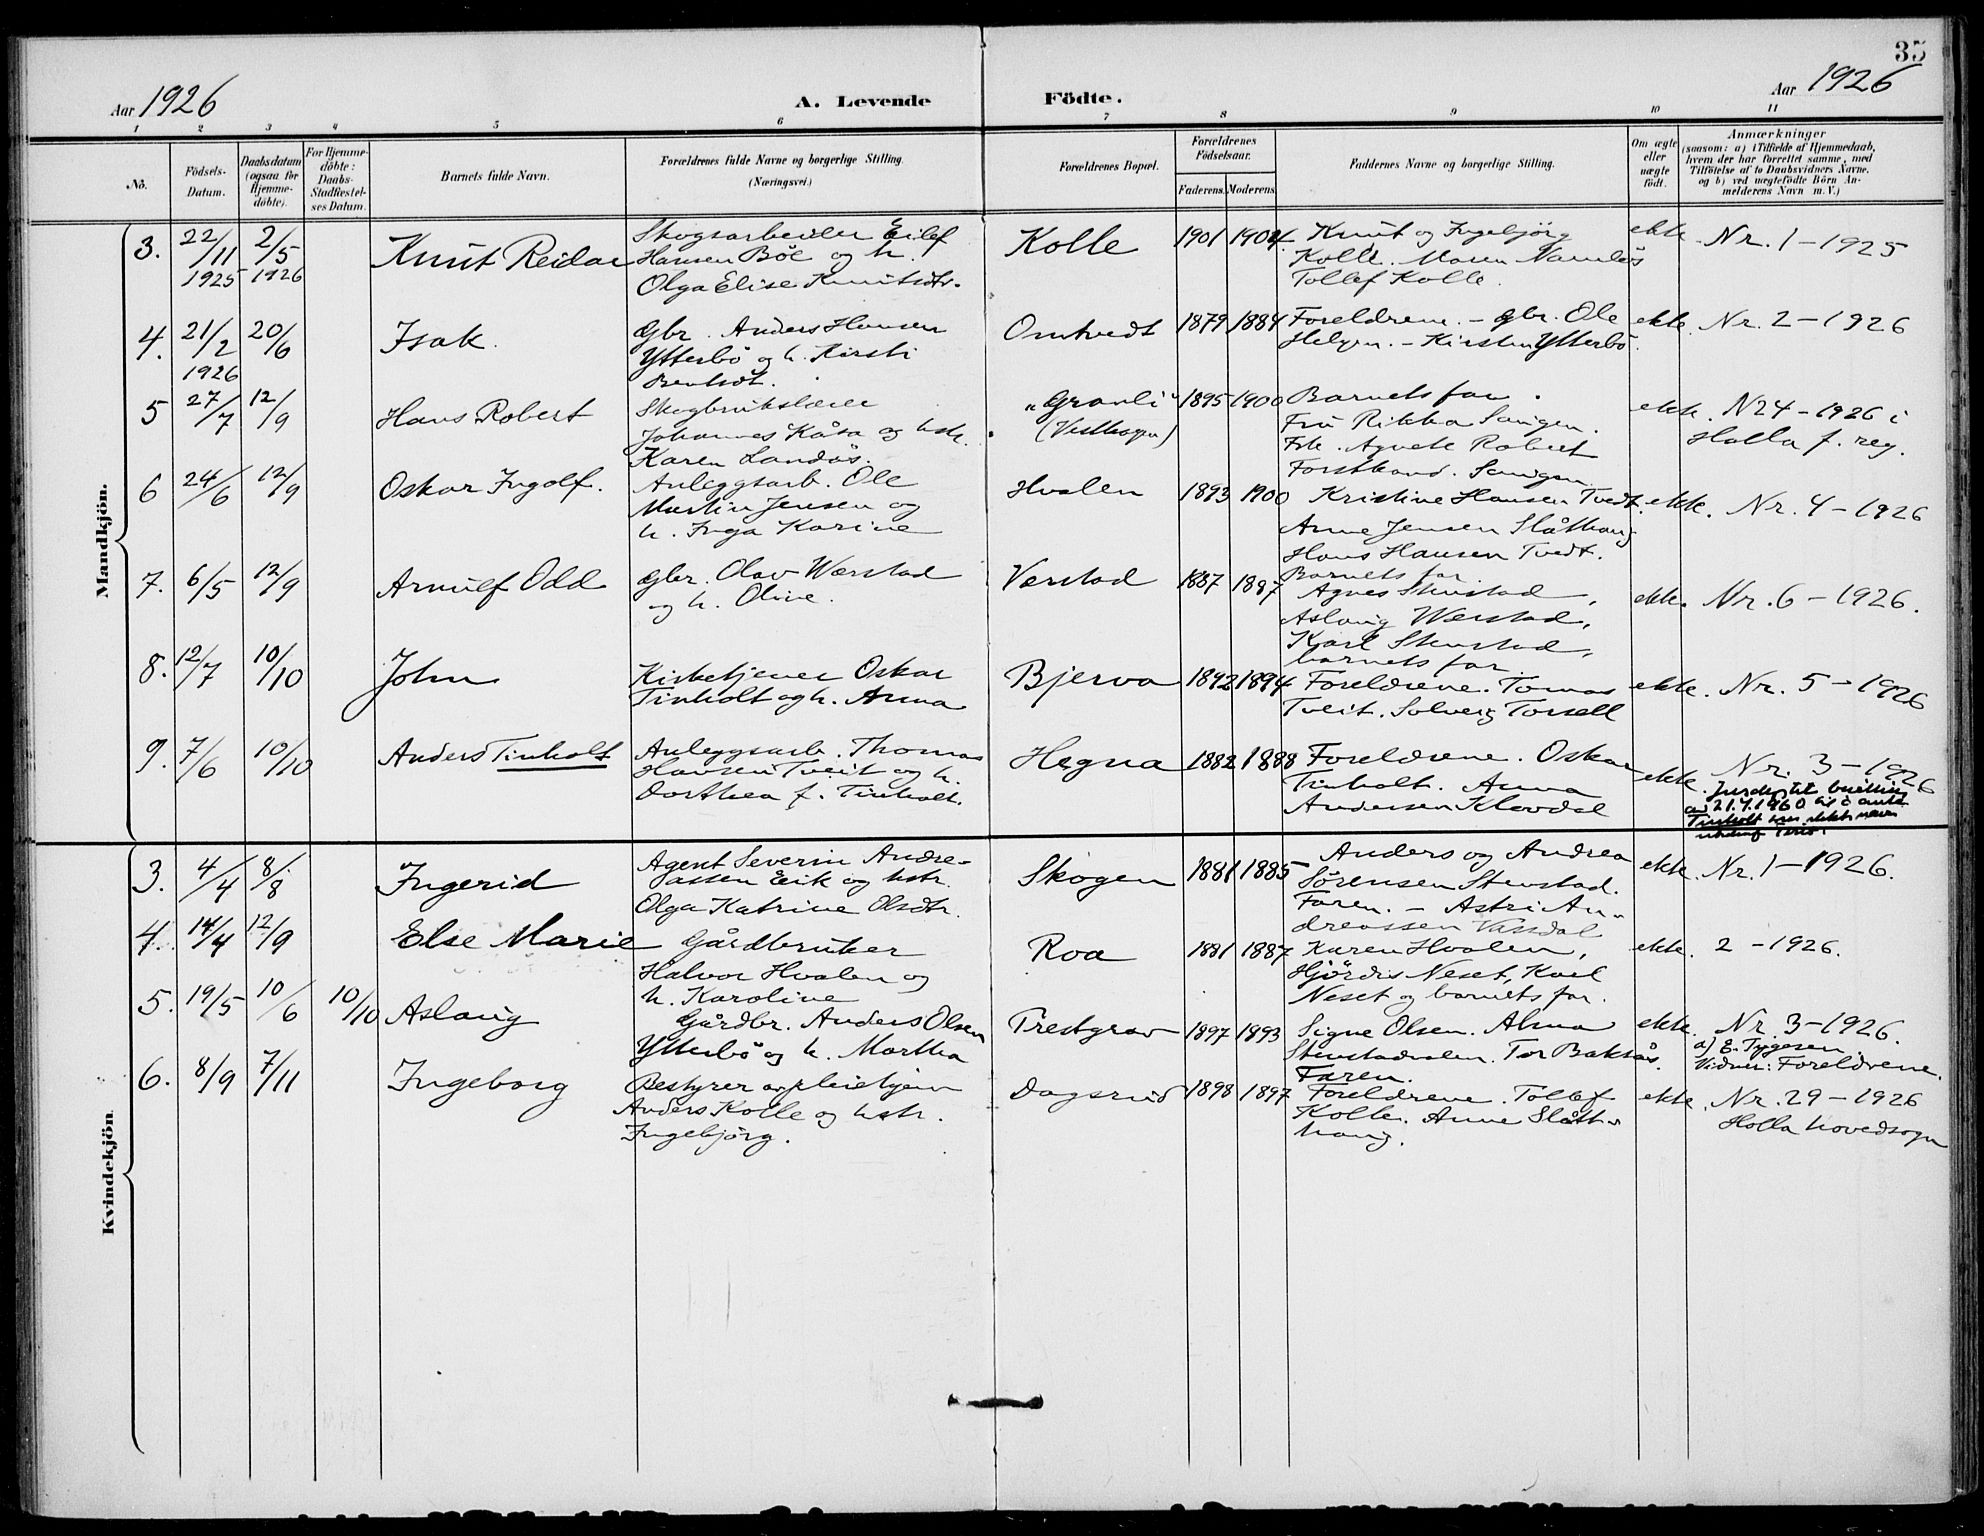 35
Aar 1926
A. Levende Födte.
Aar 1926
1 2 3 4 5 6 7 8 9 10 11
No.
Födsels-Datum.
Daabsdatum (ogsaa for Hjemme-döbte).
For Hjemme-döbte: Daabs-Stadfæstel-ses Datum.
Barnets fulde Navn.
Forældrenes fulde Navne og borgerlige Stilling. (Næringsvei.)
Forældrenes Bopæl.
Forældrenes Födselsaar.
Faderens. Moderens.
Faddernes Navne og borgerlige Stilling.
Om ægte eller uægte födt.
Anmærkninger
(saasom: a) i Tilfælde af Hjemmedaab,
hvem der har forrettet samme, med
Tilföielse af to Daabsvidners Navne,
og b) ved uægtefödte Börn An-
melderens Navn m. V.)
Mandkjön.
3. 22/11 1925 2/5 1926 Knut Reidar
Skogsarbeider Eilef
Hansen Böe og h.
Olga Elise Knutsdtr.
Kolle 1901 1904
Knut og Ingebjörg
Kolle. Maren Namlös
Tollef Kolle.
ekte. Nr. 1 - 1925
4. 21/2 1926 20/6 Isak.
Gbr. Anders Hansen
Ytterbö og h. Kirsti
Omtvedt 1879 1884
Foreldrene. - gbr. Ole
Helgen. - Kirsten Ytterbö.
ekte. Nr. 2 - 1926
5 27/7 12/9 Hans Robert
Skogbrukslærer
Johannes Kåsa og hstr.
Karen Landös.
"Granli" 1895 1900
Barnets far.
Fru Rikka
Frk. Agnete Robert
ekte. N24 - 1926 i
Holla f. reg.
6 24/6 12/9 Oskar Ingolf.
Anleggsarb. Ole
Martin Jensen og
h. Inga Karine
Hvalen 1893 1900
Kristine Hansen Tvedt.
Anne Jensen Slåthaug
Hans Hansen Tvedt.
Barnets far.
ekte. Nr. 4 - 1926
7. 6/5 12/9 Arnulf Odd
gbr. Olav Værstad
og h. Oline.
Verstad 1887 1887
Agnes Stenstad,
Aslaug Werstad,
Karl Stenstad,
barnets far.
ekte. Nr. 6 - 1926.
8. 12/7 10/10 John
Kirketjener Oskar
Tinholt og h. Anna
Bjerva 1892 1894
Foreldrene. Tomas
Tveit. Solveig Torsell
ekte. Nr. 5 - 1926
9. 7/6 10/10 Anders Tinholt
Anleggsarb. Thomas
Hansen Tveit og h.
Dorthea f. Tinholt.
Hegna 1882 1888
Foreldrene. Oskar
Tinholt. Anna
Andersen Klovdal
ekte. Nr. 3 - 1926
av 21.7.1960
Tinholt
Kvindekjön.
3. 4/4 8/8 Ingerid
Agent Severin Andre-
assen Eik og hstr.
Olga Katrine Olsdtr.
Skogen 1881 1885
Anders og Andrea
Sörensen Stenstad.
Faren. - Astri An-
dreassen
ekte. Nr. 1 - 1926.
4. 14/4 12/9 Else Marie
Gårdbruker
Halvor Hvalen og
h. Karoline
Roa 1881 1887
Karen Hvalen,
Hjördis Neset, Karl
Neset og barnets far.
ekte. 2 - 1926.
5. 19/5 10/6 10/10 Aslaug
Gårdbr. Anders Olsen
Ytterbö og h. Martha
Trestgrav 1897 1893
Signe Olsen. Alma
Stenstadvalen. Tor Baksås.
Faren.
ekte. Nr. 3 - 1926.
a) E. Tygesen
Vidner: Foreldrene.
6. 8/9 7/11 Ingeborg
Bestyrer av pleiehjem
Anders Kolle og hstr.
Ingebjörg.
Dagsrud 1898 1897
Foreldrene. Tollef
Kolle. Anne Slått-
haug.
ekte. Nr. 29 - 1926
Holla hovedsogn